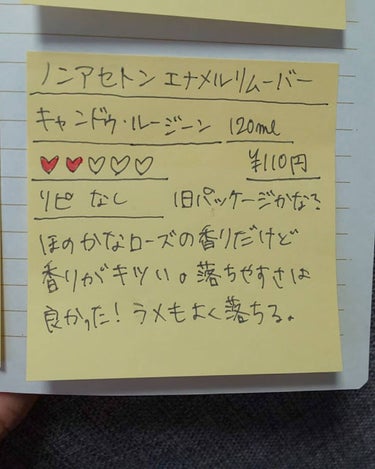 ノンアセトン エナメルリムーバー
キャンドゥ・ルージーン 120ml
♥♥♡♡♡ ¥110円
リピ なし 旧パッケージかな?
ほのかなローズの香りだけど
香りがキツい。落ちやすさは
良かった!ラメもよく落ちる。